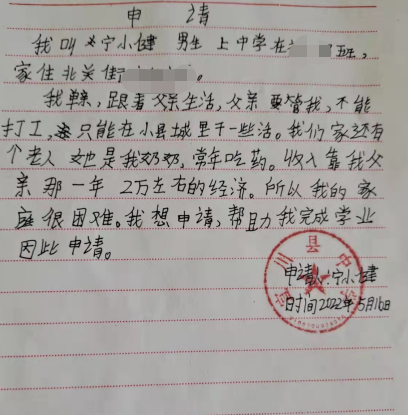 申 请
我叫宁小健 男生 上中学在 五班，
家住北关街 。
我单亲，跟着父亲生活，父亲要管我，不能
打工，只能在小县城里干一些活。我们家还有
个老人 她是我奶奶，常年吃药。收入靠我父
亲那一年 2万左右的经济。所以我的家
庭很困难。我想申请，帮助我完成学业
因此申请。
申请人：宁小健
时间2022年5月16日